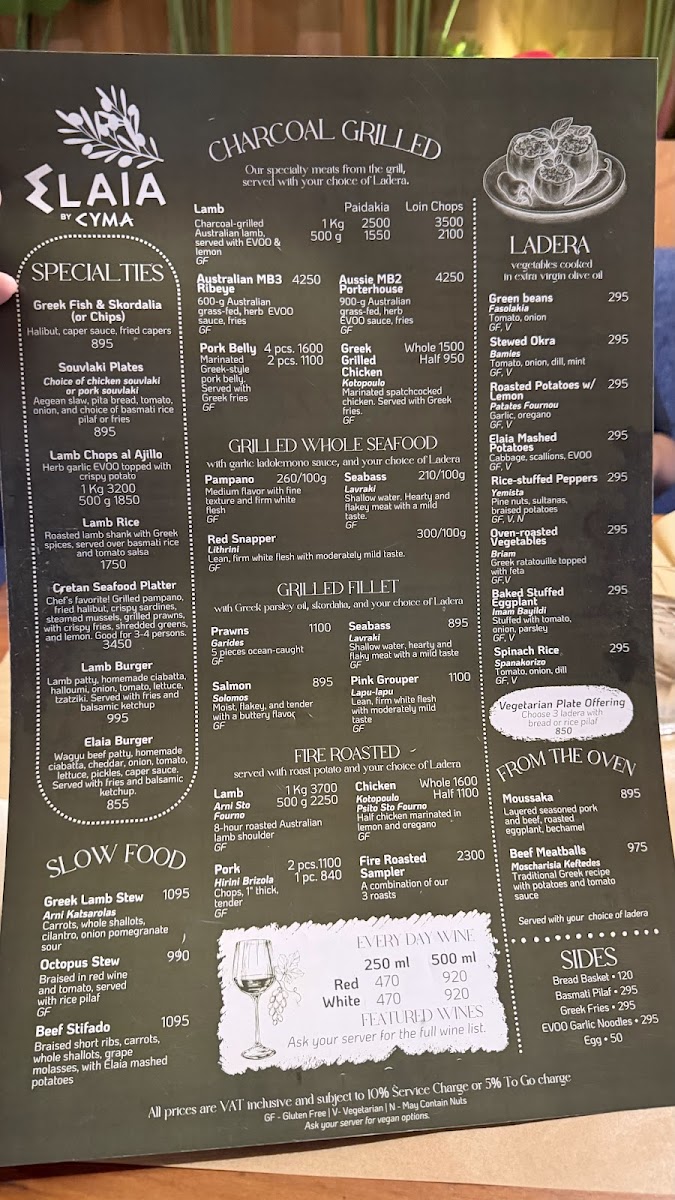 ELAIA
BY CYMA
SPECIALTIES
Greek Fish & Skordalia
(or Chips)
Halibut, caper sauce, fried capers
895
Souvlaki Plates
Choice of chicken souvlaki
or pork souvlaki
Aegean slaw, pita bread, tomato,
onion, and choice of basmati rice
pilaf or fries
895
Lamb Chops al Ajillo
Herb garlic EVOO topped with
crispy potato
1 Kg 3200
500 g 1850
Lamb Rice
Roasted lamb shank with Greek
spices, served over basmati rice
and tomato salsa
1750
Cretan Seafood Platter
Chef's favorite! Grilled pampano,
fried halibut, crispy sardines,
steamed mussels, grilled prawns,
with crispy fries, shredded greens,
and lemon. Good for 3-4 persons.
3450
Lamb Burger
Lamb patty, homemade ciabatta,
halloumi, onion, tomato, lettuce,
tzatziki. Served with fries and
balsamic ketchup
995
Elaia Burger
Wagyu beef patty, homemade
ciabatta, cheddar, onion, tomato,
lettuce, pickles, caper sauce.
Served with fries and balsamic
ketchup.
855
SLOW FOOD
Greek Lamb Stew 1095
Arni Katsarolas
Carrots, whole shallots,
cilantro, onion pomegranate
sour
Octopus Stew 990
Braised in red wine
and tomato, served
with rice pilaf
GF
Beef Stifado 1095
Braised short ribs, carrots,
whole shallots, grape
molasses, with Elaia mashed
potatoes
CHARCOAL GRILLED
Our specialty meats from the grill,
served with your choice of Ladera.
Lamb Paidakia Loin Chops
Charcoal-grilled 1 Kg 2500 3500
Australian lamb, 500 g 1550 2100
served with EVOO &
lemon
GF
Australian MB3 4250
Ribeye
600-g Australian
grass-fed, herb EVOO
sauce, fries
GF
Aussie MB2 4250
Porterhouse
900-g Australian
grass-fed, herb
EVOO sauce, fries
GF
Pork Belly 4 pcs. 1600
Marinated 2 pcs. 1100
Greek-style
pork belly.
Served with
Greek fries
GF
Greek Whole 1500
Grilled Half 950
Chicken
Kotopoulo
Marinated spatchcocked
chicken. Served with Greek
fries.
GF
GRILLED WHOLE SEAFOOD
with garlic ladolemono sauce, and your choice of Ladera
Pampano 260/100g
Medium flavor with fine
texture and firm white
flesh
GF
Seabass 210/100g
Lavraki
Shallow water. Hearty and
flakey meat with a mild
taste.
GF
Red Snapper 300/100g
Lithrini
Lean, firm white flesh with moderately mild taste.
GF
GRILLED FILLET
with Greek parsley oil, skordalia, and your choice of Ladera
Prawns 1100
Garides
5 pieces ocean-caught
GF
Seabass 895
Lavraki
Shallow water, hearty and
flaky meat with a mild taste
GF
Salmon 895
Solomos
Moist, flakey, and tender
with a buttery flavor
GF
Pink Grouper 1100
Lapu-lapu
Lean, firm white flesh
with moderately mild
taste
GF
FIRE ROASTED
served with roast potato and your choice of Ladera
Lamb 1 Kg 3700
Arni Sto 500 g 2250
Fourno
8-hour roasted Australian
lamb shoulder
GF
Chicken Whole 1600
Kotopoulo Half 1100
Psito Sto Fourno
Half chicken marinated in
lemon and oregano
GF
Pork 2 pcs.1100
Hirini Brizola 1 pc. 840
Chops, 1" thick,
tender
GF
Fire Roasted 2300
Sampler
A combination of our
3 roasts
EVERY DAY WINE
250 ml 500 ml
Red 470 920
White 470 920
FEATURED WINES
Ask your server for the full wine list.
LADERA
vegetables cooked
in extra virgin olive oil
Green beans 295
Fasolakia
Tomato, onion
GF, V
Stewed Okra 295
Bamies
Tomato, onion, dill, mint
GF, V
Roasted Potatoes w/ 295
Lemon
Patates Fournou
Garlic, oregano
GF, V
Elaia Mashed 295
Potatoes
Cabbage, scallions, EVOO
GF, V
Rice-stuffed Peppers 295
Yemista
Pine nuts, sultanas,
braised potatoes
GF, V, N
Oven-roasted 295
Vegetables
Briam
Greek ratatouille topped
with feta
GF,V
Baked Stuffed 295
Eggplant
Imam Bayildi
Stuffed with tomato,
onion, parsley
GF, V
Spinach Rice 295
Spanakorizo
Tomato, onion, dill
GF, V
Vegetarian Plate Offering
Choose 3 ladera with
bread or rice pilaf
850
FROM THE OVEN
Moussaka 895
Layered seasoned pork
and beef, roasted
eggplant, bechamel
Beef Meatballs 975
Moscharisia Keftedes
Traditional Greek recipe
with potatoes and tomato
sauce
Served with your choice of ladera
SIDES
Bread Basket • 120
Basmati Pilaf • 295
Greek Fries • 295
EVOO Garlic Noodles • 295
Egg • 50
All prices are VAT inclusive and subject to 10% Service Charge or 5% To Go charge
GF - Gluten Free | V- Vegetarian | N - May Contain Nuts
Ask your server for vegan options.